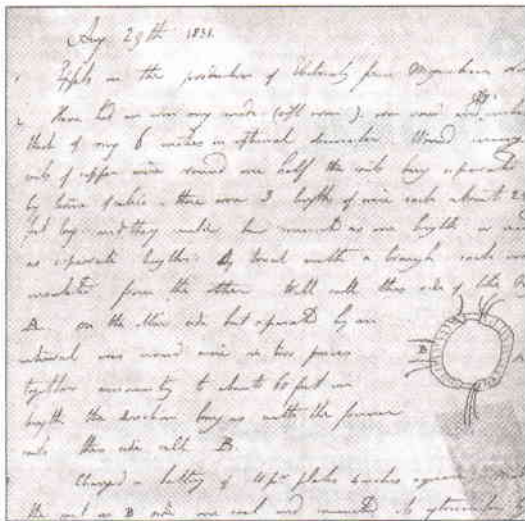 Aug 29th 1831.
1 Expts on the production of Electricity from Magnetism
2 Have had an iron ring made (soft iron), iron round and inches
thick & ring 6 inches in external diameter. Wound many
coils of copper wire round one half the coils being separated
by twine & calico - there were 3 lengths of wire each about 2
feet long and they could be connected as one length or used
as separate lengths. By trial with a trough each was
insulated from the other. Will call this side of the
A. on the other side but separated by an
interval was wound wire in two pieces
together amounting to about 60 feet in
length the direction being as with the former
coils this side call B.
Charged a battery of pr plates 4 inches square. Made
the coil on B side one coil and connected its extremities
B